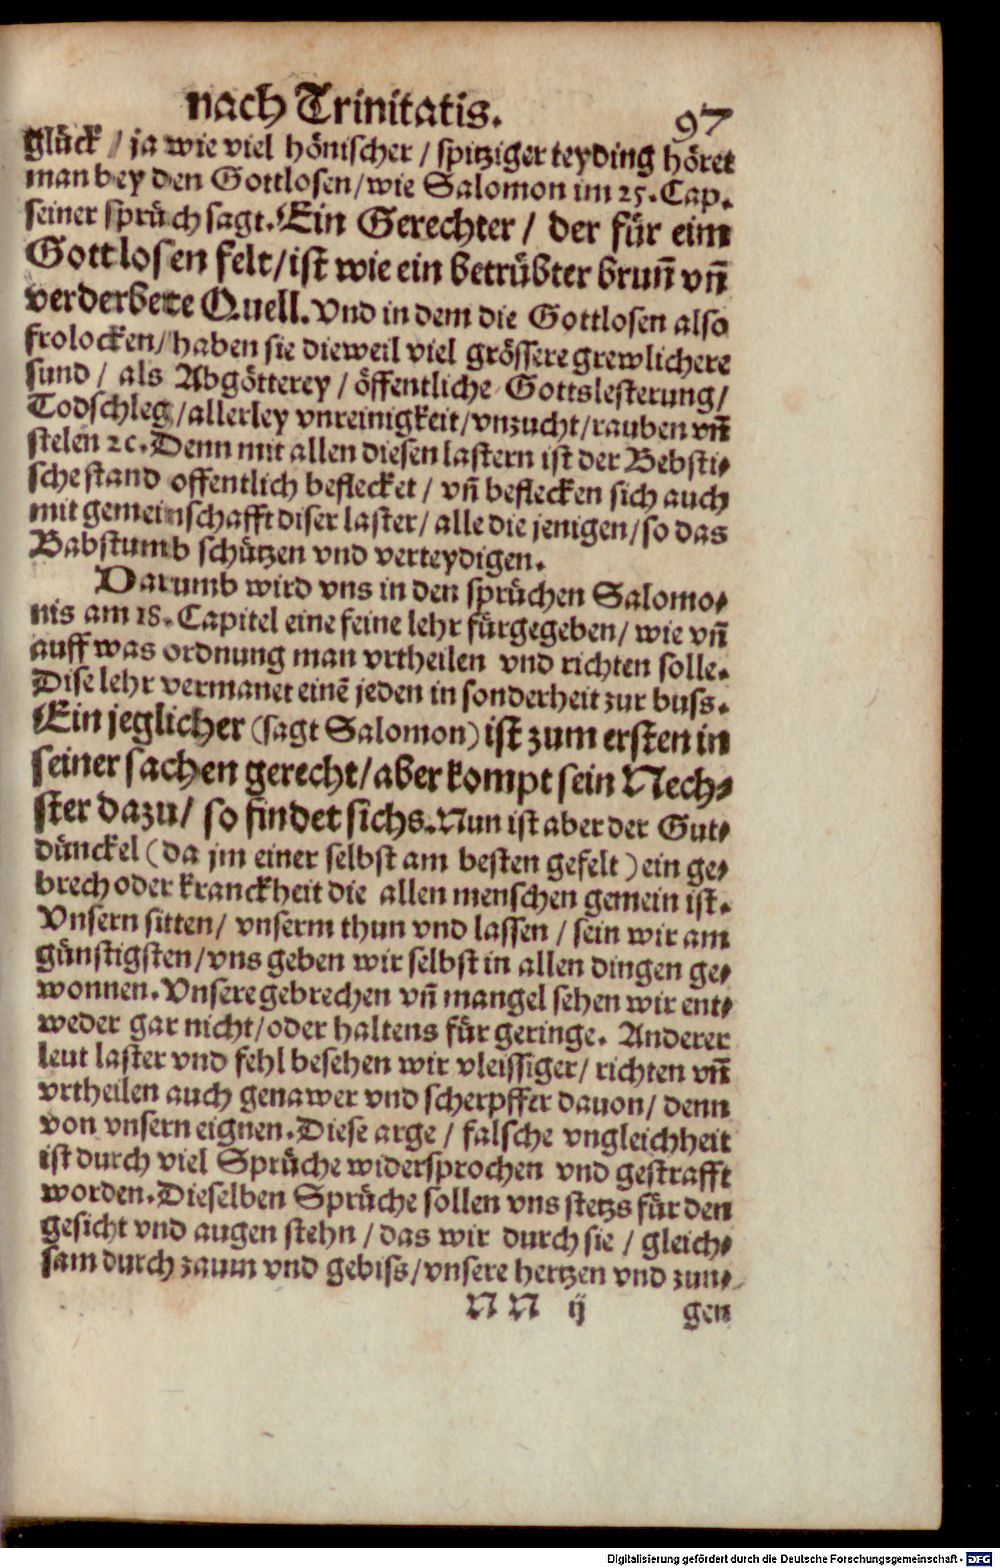 nach Trinitatis. 97
glück / ja wie viel hönischer / spitziger teyding höret
man bey den Gottlosen/wie Salomon im 25. Cap.
seiner sprüch sagt. Ein Gerechter / der für eim
Gottlosen felt/ist wie ein betrübter brun̄ vn̄
verderbete Quell. Vnd in dem die Gottlosen also
frolocken/haben sie dieweil viel grössere grewlichere
sund / als Abgötterey / öffentliche Gottslesterung/
Todschleg/allerley vnreinigkeit/vnzucht/rauben vn̄
stelen ꝛc. Denn mit allen diesen lastern ist der Bebsti⸗
sche stand offentlich beflecket / vn̄ beflecken sich auch
mit gemeinschafft diser laster/ alle die jenigen/so das
Babstumb schützen vnd verteydigen.
Darumb wird vns in den sprüchen Salomo⸗
nis am 18. Capitel eine feine lehr fürgegeben/ wie vn̄
auff was ordnung man vrtheilen vnd richten solle.
Dise lehr vermanet einē jeden in sonderheit zur buss.
Ein jeglicher (sagt Salomon) ist zum ersten in
seiner sachen gerecht/aber kompt sein Nech⸗
ster dazu/ so findet sichs. Nun ist aber der Gut⸗
dünckel (da jm einer selbst am besten gefelt) ein ge⸗
brech oder kranckheit die allen menschen gemein ist.
Vnsern sitten/ vnserm thun vnd lassen / sein wir am
günstigsten/vns geben wir selbst in allen dingen ge⸗
wonnen. Vnsere gebrechen vn̄ mangel sehen wir ent⸗
weder gar nicht/oder haltens für geringe. Anderer
leut laster vnd fehl besehen wir vleissiger/ richten vn̄
vrtheilen auch genawer vnd scherpffer dauon/ denn
von vnsern eignen. Diese arge / falsche vngleichheit
ist durch viel Sprüche widersprochen vnd gestrafft
worden. Dieselben Sprüche sollen vns stetzs für den
gesicht vnd augen stehn / das wir durch sie / gleich⸗
sam durch zaum vnd gebiss/vnsere hertzen vnd zun⸗
N N ij gen
Digitalisierung gefördert durch die Deutsche Forschungsgemeinschaft - DFG